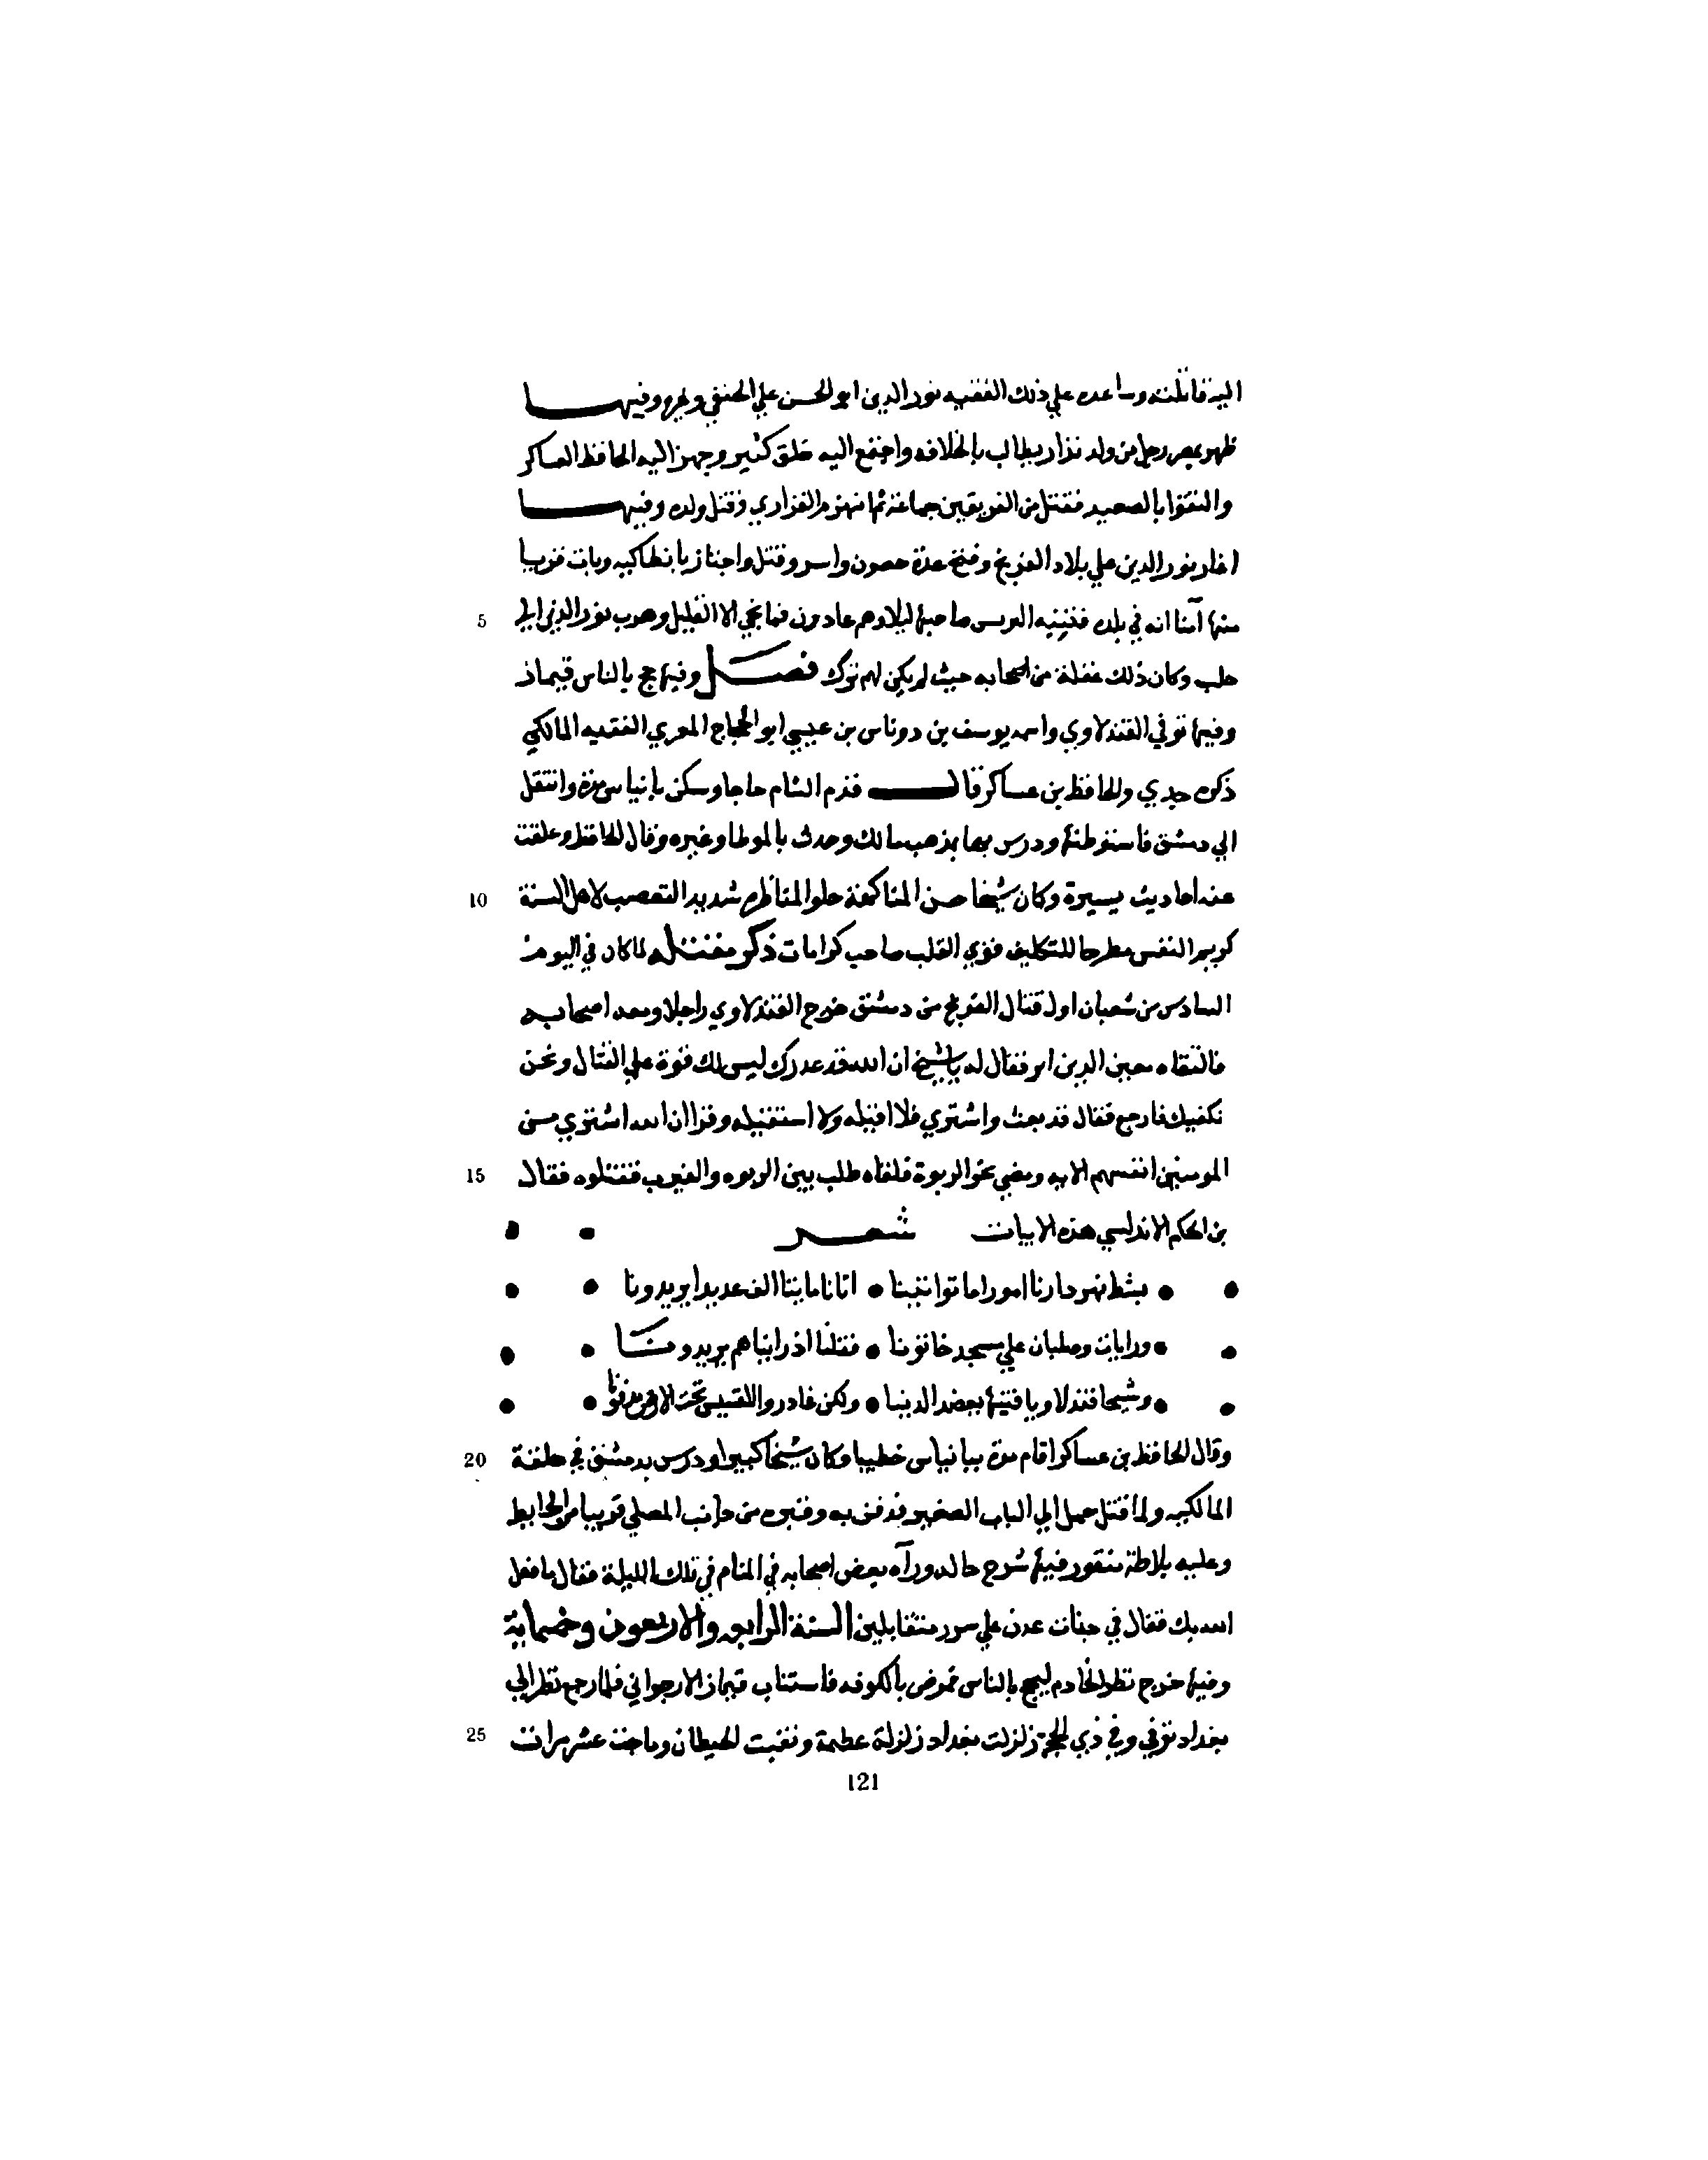 اليه قاتلته وساعده علي ذلك الفقيه نور الدين ابو الحسن علي الحنفي وغيره وفيهـا
ظهر بمصر رجل من ولد نزار يطالب بالخلافه واجتمع اليه خلق كثير وجهز اليه الحافظ العساكر
والتقوا بالصعيد فقتل من الفريقين جماعة ثم انهزم الفزاري وقتل ولده وفيهـا
اغار نور الدين علي بلاد الفرنج وفتح عدة حصون واسر وقتل واجتاز بانطاكيه وبات قريبا
منها آمنا انه في بلده الا القليل وهرب نور الدين الي
حلب وكان ذلك غفلة من اصحابه حيث لم يكن لهم يزك فصـل وفيها حج بالناس قيماز
وفيها توفي الفندلاوي واسمه يوسف بن دوناس بن عيسي ابو الحجاج المغربي الفقيه المالكي
ذكره جدي والحافظ بن عساكر قال قدم الشام حاجا وسكن بانياس مدة وانتقل
الي دمشق فاستوطنها ودرس بها بمذهب مالك وحدث بالموطا وغيره وقال الحافظ وعلقت
عنه احاديث يسيرة وكان شيخا حسن المفاكهة حلو المناظره شديد التعصب لاهل السنة
كريم النفس مطرحا للتكلف قوي القلب صاحب كرامات ذكر مقتله لما كان في اليوم
السادس من شعبان اول قتال الفرنج من دمشق خرج الفندلاوي راجلا ومعه اصحابه
فالتقاه معين الدين انر فقال له يا شيخ ان الله قد عدرك ليس لك قوة علي القتال ونحن
نكفيك فارجع فقال قد بعت واشتري فلا اقيله ولا استقيله وقرا ان الله اشتري مـن
المومنين انفسهم الايه ومضي نحو الربوة فلقاه طلب بين الربوه والنيرب فقتلوه فقال
بن الحكم الاندلسي هذه الابيات شعـر
بشط نهر دارنا امورا ما تواتينا • اتانا مايتا الف عديدا يريدونا
ورايات وصلبان علي مسجد خاتونا • فقلنا اذ رايناهم يريدومنـا
وشيخا فندلاويا فقيها يعضد الدينا • ولكن غادروا القسيس تحت الارض مدفونا
وقال الحافظ بن عساكر اقام مدة ببانياس خطيبا وكان شيخا كبيرا ودرس بدمشق في حلقة
المالكيه ولما قتل حمل الي الباب الصغير فدفن به وقبره من جانب المصلي قريبا من الحايط
وعليه بلاطة منقور فيها شرح حاله ورآه بعض اصحابه في المنام في تلك الليلة فقال ما فعل
الله بك فقال في جنات عدن علي سرر متقابلين السنة الرابعه والاربعون وخمسماية
وفيها خرج نظر الخادم ليحج بالناس فمرض بالكوفه فاستناب قيماز الارجواني فلما رجع نظر الي
بغداد توفي وفي ذي الحجة زلزلت بغداد زلزلة عظيمة وماجت عشر مرات
5
10
15
20
25
121